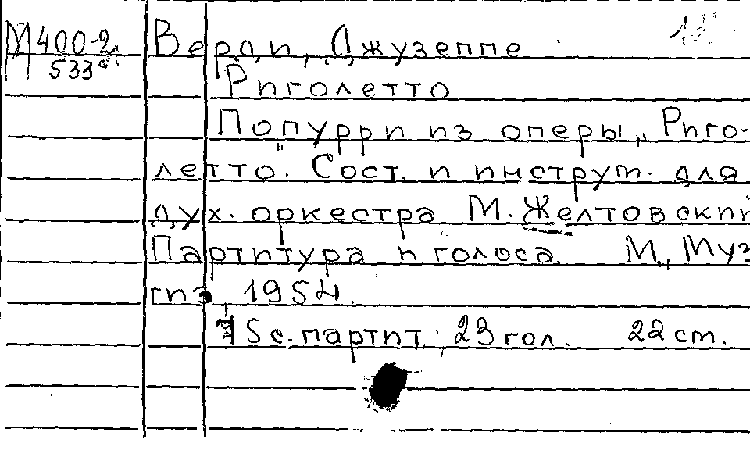 М 400-2 Верди, Джузеппе
533
Риголетто
Попурри из оперы „Риго-
летто". Сост. и инструт. для
дух. оркестра М. Желтовский
Партитура и голоса М., Муз-
гиз, 1954.
15 с. партит., 23 гол. 22 см.